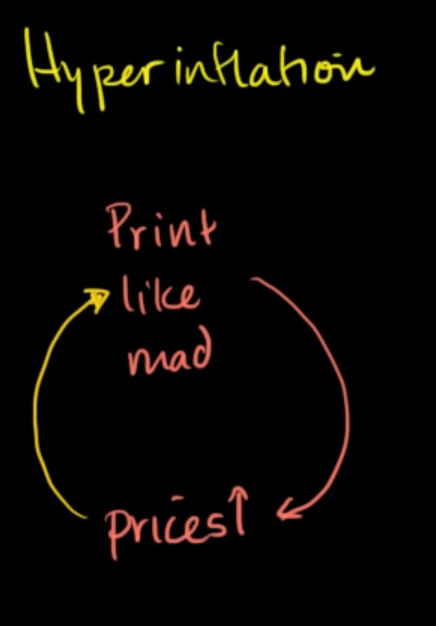 Hyperinflation
Print
like
mad
prices↑